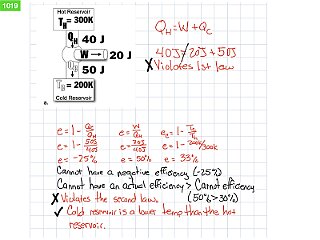 1019
Hot Reservoir
T_H = 300K
Q_H = W + Q_C
Q_H 40 J
40J ≠ 20J + 50J
W → 20 J
X Violates 1st law
Q_C 50 J
T_C = 200K
Cold Reservoir
e.
e = 1 - Q_C/Q_H e = W/Q_H e = 1 - T_C/T_H
e = 1 - 50J/40J e = 20J/40J e = 1 - 200K/300K
e = -25% e = 50% e = 33%
Cannot have a negative efficiency (-25%)
Cannot have an actual efficiency > Carnot efficiency
X Violates the second law. (50% > 33%)
✓ Cold reservoir is a lower temp than the hot
reservoir.